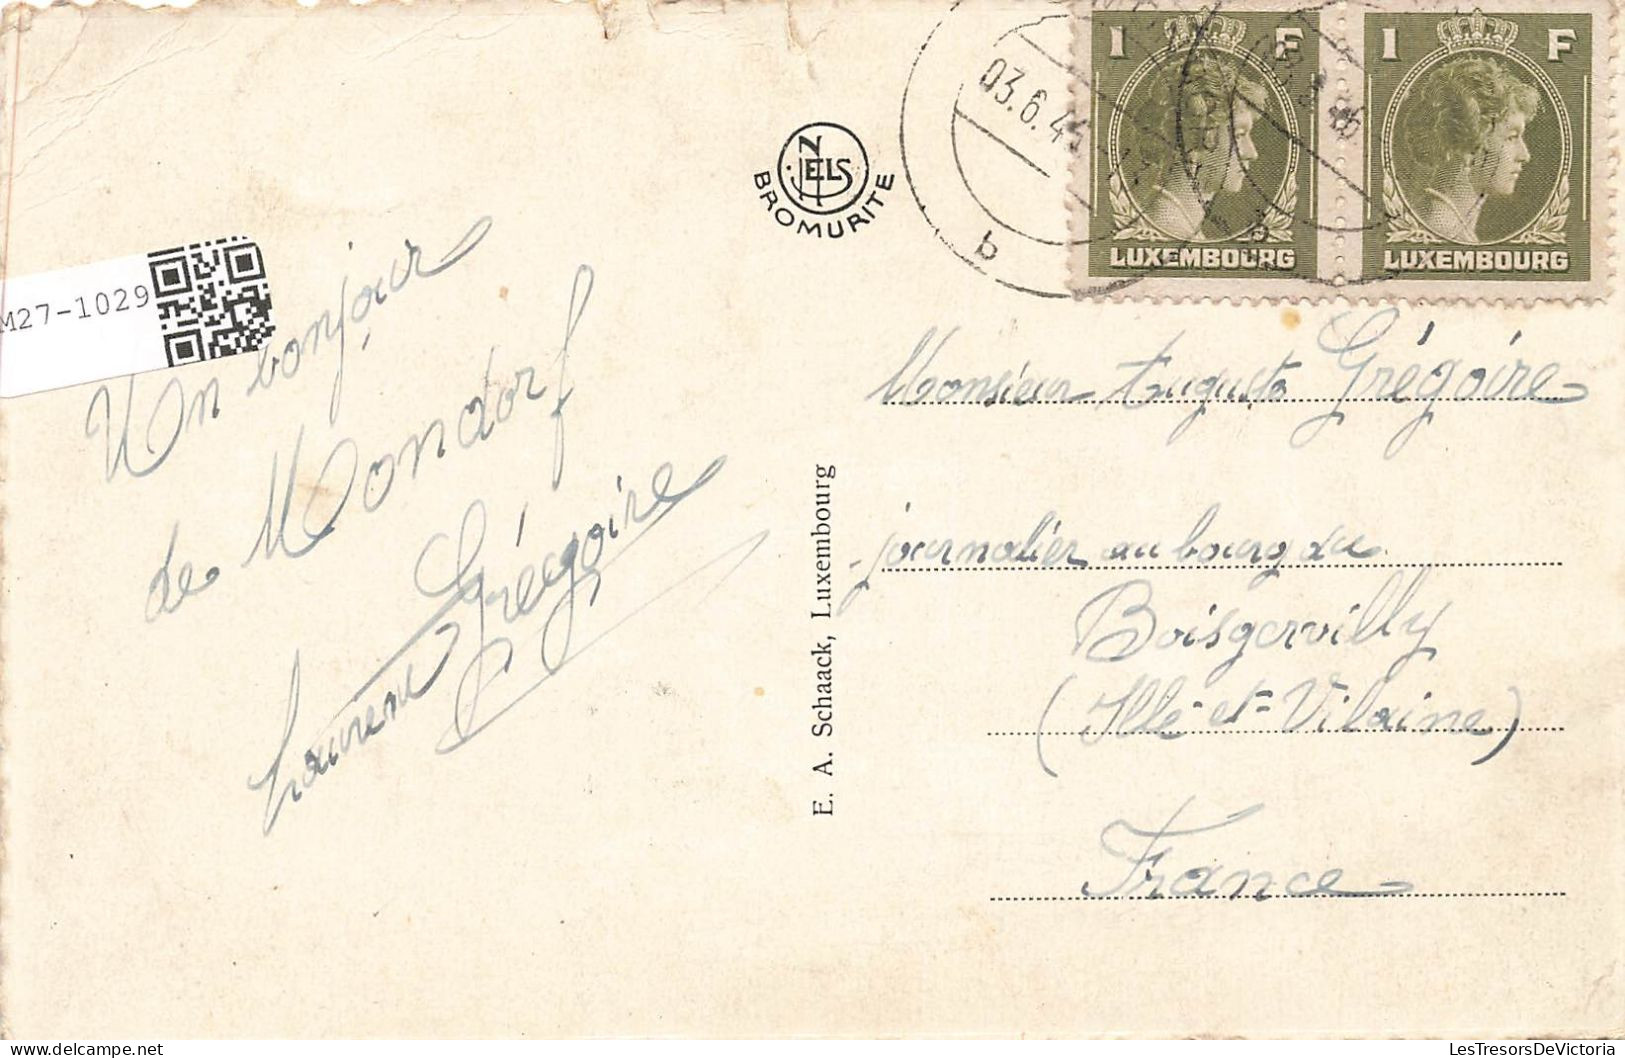 M27-1029
Un bonjour
de Mondorf
Grégoire
NELS
BROMURITE
E. A. Schaack, Luxembourg
03.6.4
b
1 F
LUXEMBOURG
1 F
LUXEMBOURG
Monsieur Auguste Grégoire
journalier au bourg du
Boisgervilly
(Ille-et-Vilaine)
France
LesTresorsDeVictoria